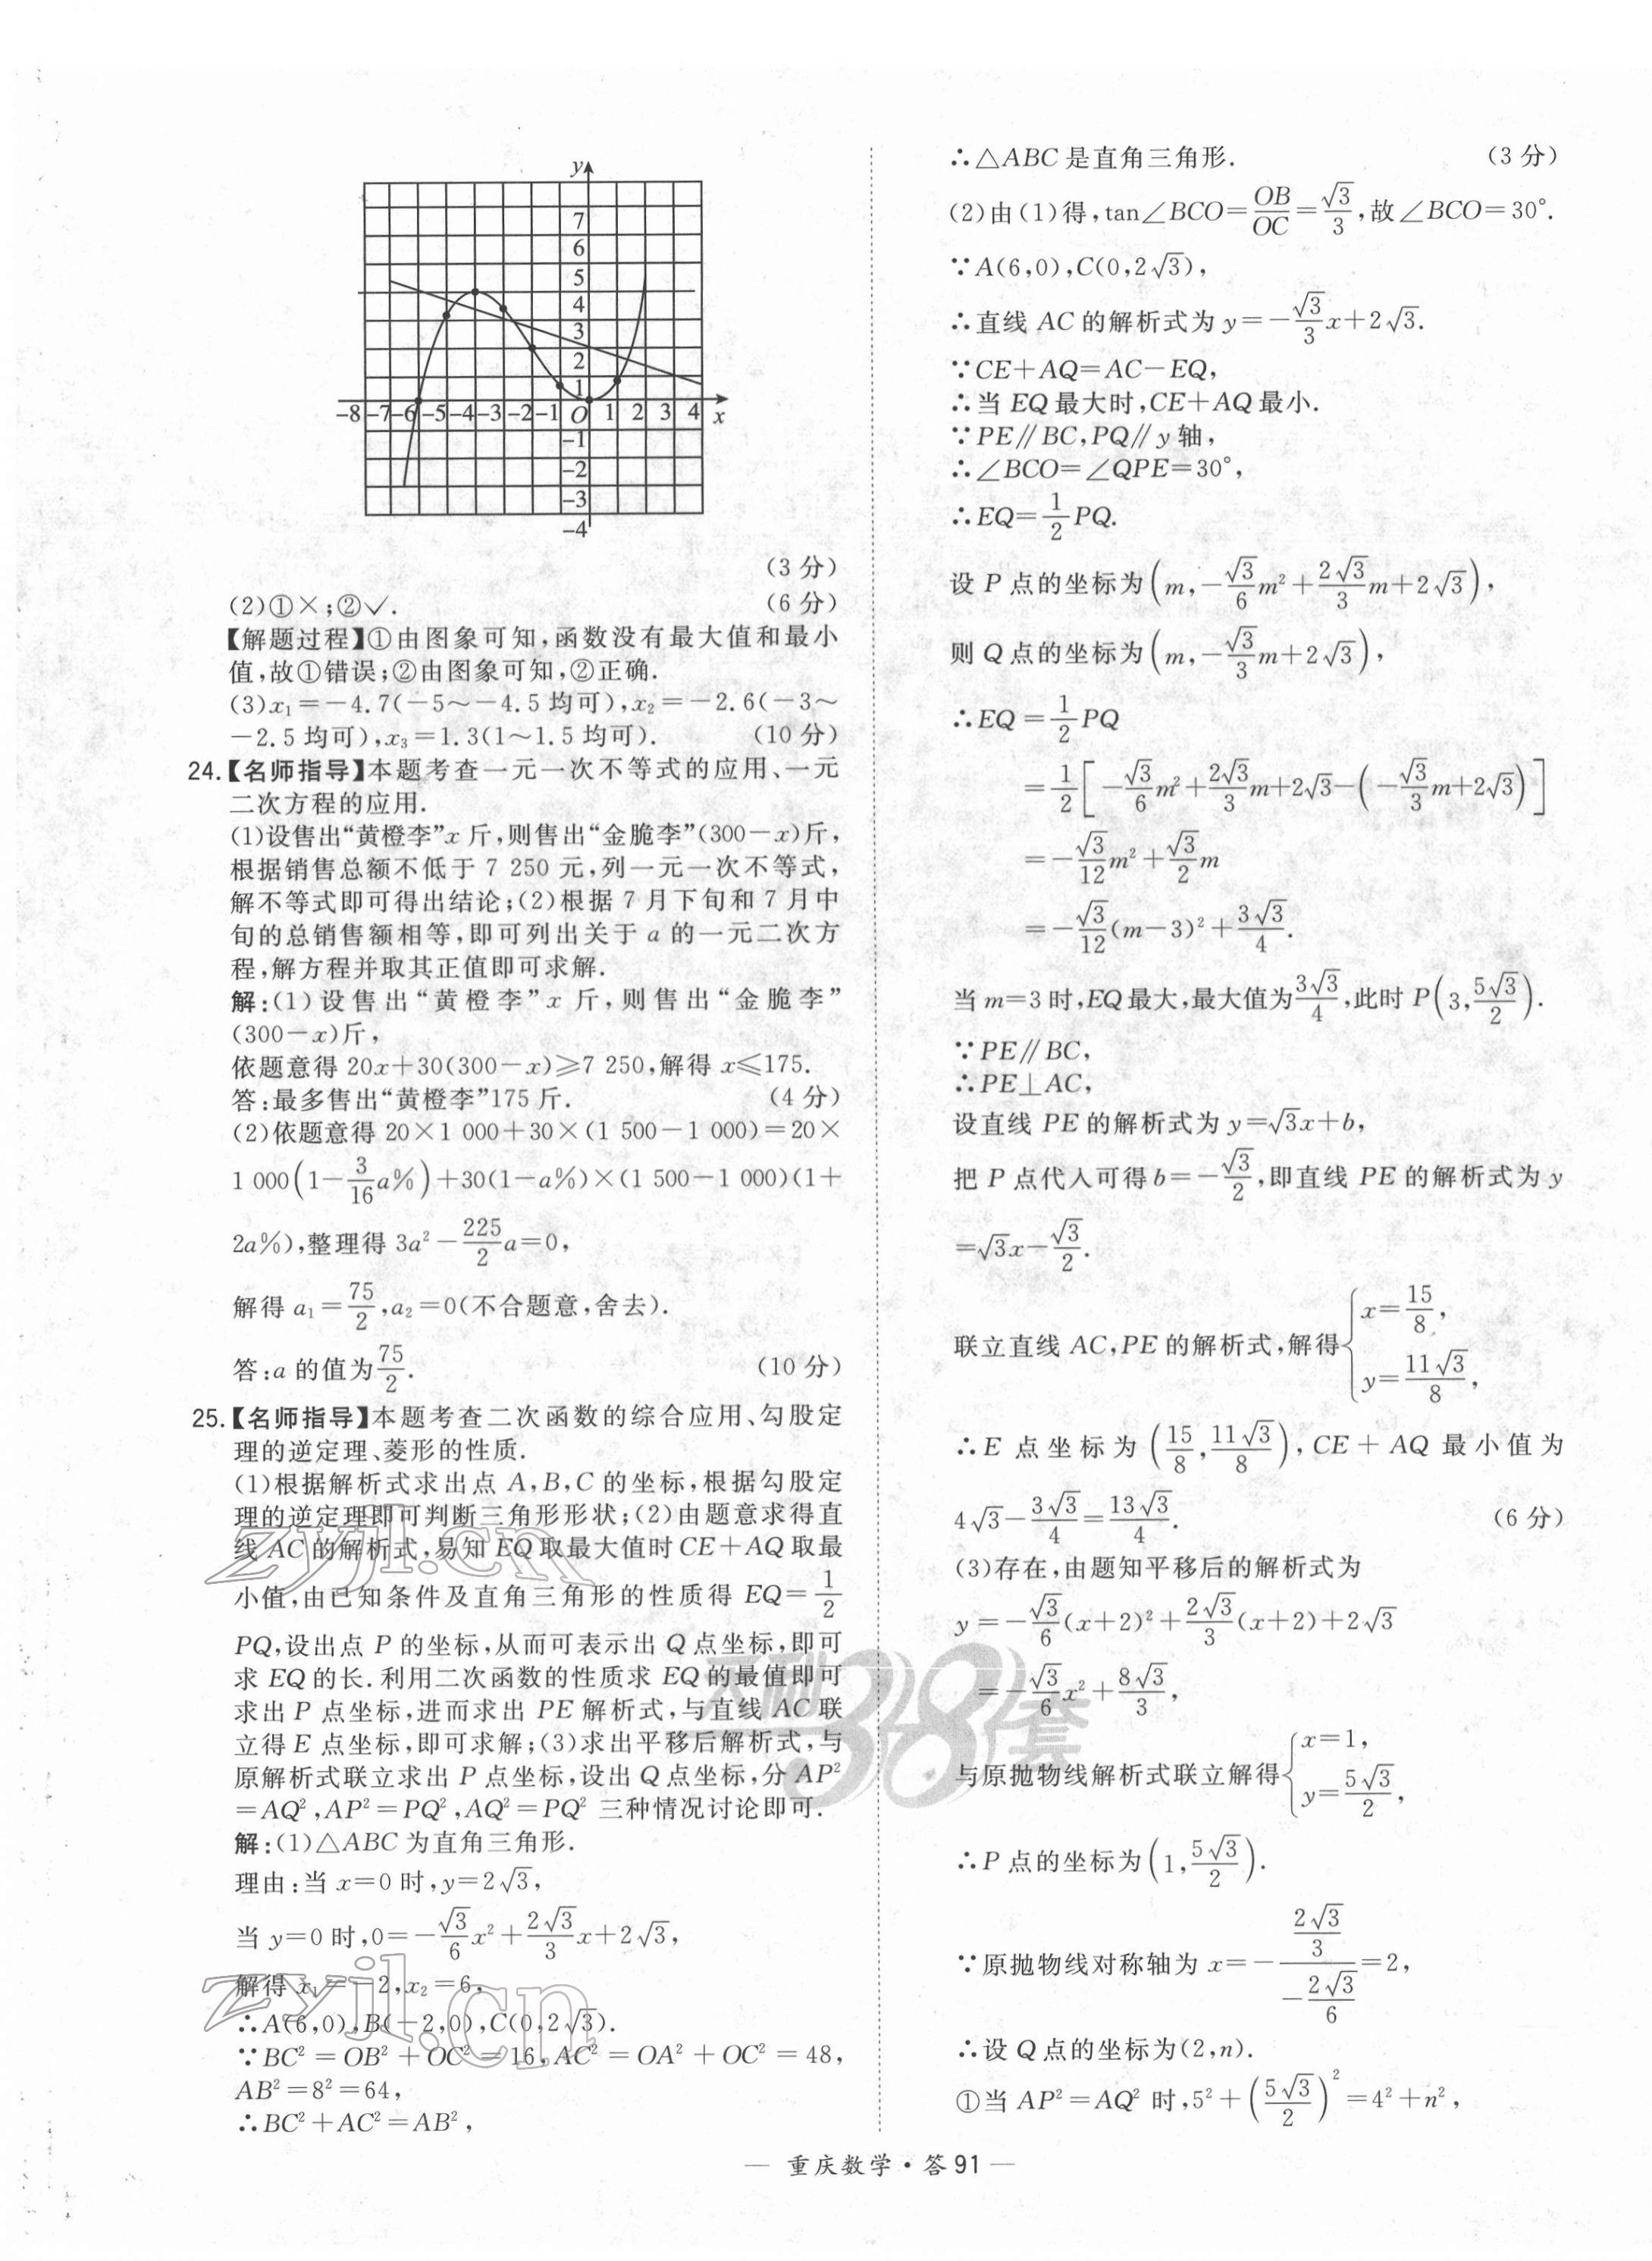 y
7
6
5
4
3
2
1
-8 -7 -6 -5 -4 -3 -2 -1 O 1 2 3 4 x
-1
-2
-3
-4
(3 分)
(2)①×;②✓. (6 分)
【解题过程】①由图象可知,函数没有最大值和最小
值,故①错误;②由图象可知,②正确.
(3)x₁=-4.7(-5~-4.5 均可),x₂=-2.6(-3~
-2.5 均可),x₃=1.3(1~1.5 均可). (10 分)
24.【名师指导】本题考查一元一次不等式的应用、一元
二次方程的应用.
(1)设售出“黄橙李”x 斤,则售出“金脆李”(300-x)斤,
根据销售总额不低于 7 250 元,列一元一次不等式,
解不等式即可得出结论;(2)根据 7 月下旬和 7 月中
旬的总销售额相等,即可列出关于 a 的一元二次方
程,解方程并取其正值即可求解.
解:(1)设售出“黄橙李”x 斤,则售出“金脆李”
(300-x)斤,
依题意得 20x+30(300-x)≥7 250,解得 x≤175.
答:最多售出“黄橙李”175 斤. (4 分)
(2)依题意得 20×1 000+30×(1 500-1 000)=20×
1 000(1-3/16 a%)+30(1-a%)×(1 500-1 000)(1+
2a%),整理得 3a²-225/2 a=0,
解得 a₁=75/2,a₂=0(不合题意,舍去).
答:a 的值为75/2. (10 分)
25.【名师指导】本题考查二次函数的综合应用、勾股定
理的逆定理、菱形的性质.
(1)根据解析式求出点 A,B,C 的坐标,根据勾股定
理的逆定理即可判断三角形形状;(2)由题意求得直
线 AC 的解析式,易知 EQ 取最大值时 CE+AQ 取最
小值,由已知条件及直角三角形的性质得 EQ=1/2
PQ,设出点 P 的坐标,从而可表示出 Q 点坐标,即可
求 EQ 的长.利用二次函数的性质求 EQ 的最值即可
求出 P 点坐标,进而求出 PE 解析式,与直线 AC 联
立得 E 点坐标,即可求解;(3)求出平移后解析式,与
原解析式联立求出 P 点坐标,设出 Q 点坐标,分 AP²
=AQ²,AP²=PQ²,AQ²=PQ² 三种情况讨论即可.
解:(1)△ABC 为直角三角形.
理由:当 x=0 时,y=2√3,
当 y=0 时,0=-√3/6 x²+2√3/3 x+2√3,
解得 x₁=-2,x₂=6,
∴A(6,0),B(-2,0),C(0,2√3).
∵BC²=OB²+OC²=16,AC²=OA²+OC²=48,
AB²=8²=64,
∴BC²+AC²=AB²,
∴△ABC 是直角三角形. (3 分)
(2)由(1)得,tan∠BCO=OB/OC=√3/3,故∠BCO=30°.
∵A(6,0),C(0,2√3),
∴直线 AC 的解析式为 y=-√3/3 x+2√3.
∵CE+AQ=AC-EQ,
∴当 EQ 最大时,CE+AQ 最小.
∵PE∥BC,PQ∥y 轴,
∴∠BCO=∠QPE=30°,
∴EQ=1/2 PQ.
设 P 点的坐标为(m,-√3/6 m²+2√3/3 m+2√3),
则 Q 点的坐标为(m,-√3/3 m+2√3),
∴EQ=1/2 PQ
=1/2[-√3/6 m²+2√3/3 m+2√3-(-√3/3 m+2√3)]
=-√3/12 m²+√3/2 m
=-√3/12(m-3)²+3√3/4.
当 m=3 时,EQ 最大,最大值为3√3/4,此时 P(3,5√3/2).
∵PE∥BC,
∴PE⊥AC,
设直线 PE 的解析式为 y=√3x+b,
把 P 点代入可得 b=-√3/2,即直线 PE 的解析式为 y
=√3x-√3/2.
联立直线 AC,PE 的解析式,解得{x=15/8, y=11√3/8,
∴E 点坐标为(15/8,11√3/8),CE+AQ 最小值为
4√3-3√3/4=13√3/4. (6 分)
(3)存在,由题知平移后的解析式为
y=-√3/6(x+2)²+2√3/3(x+2)+2√3
=-√3/6 x²+8√3/3,
与原抛物线解析式联立解得{x=1, y=5√3/2,
∴P 点的坐标为(1,5√3/2).
∵原抛物线对称轴为 x=-(2√3/3)/(-2√3/6)=2,
∴设 Q 点的坐标为(2,n).
①当 AP²=AQ² 时,5²+(5√3/2)²=4²+n²,
— 重庆数学·答 91 —
zyjl.cn
zyjl.cn
天利38套